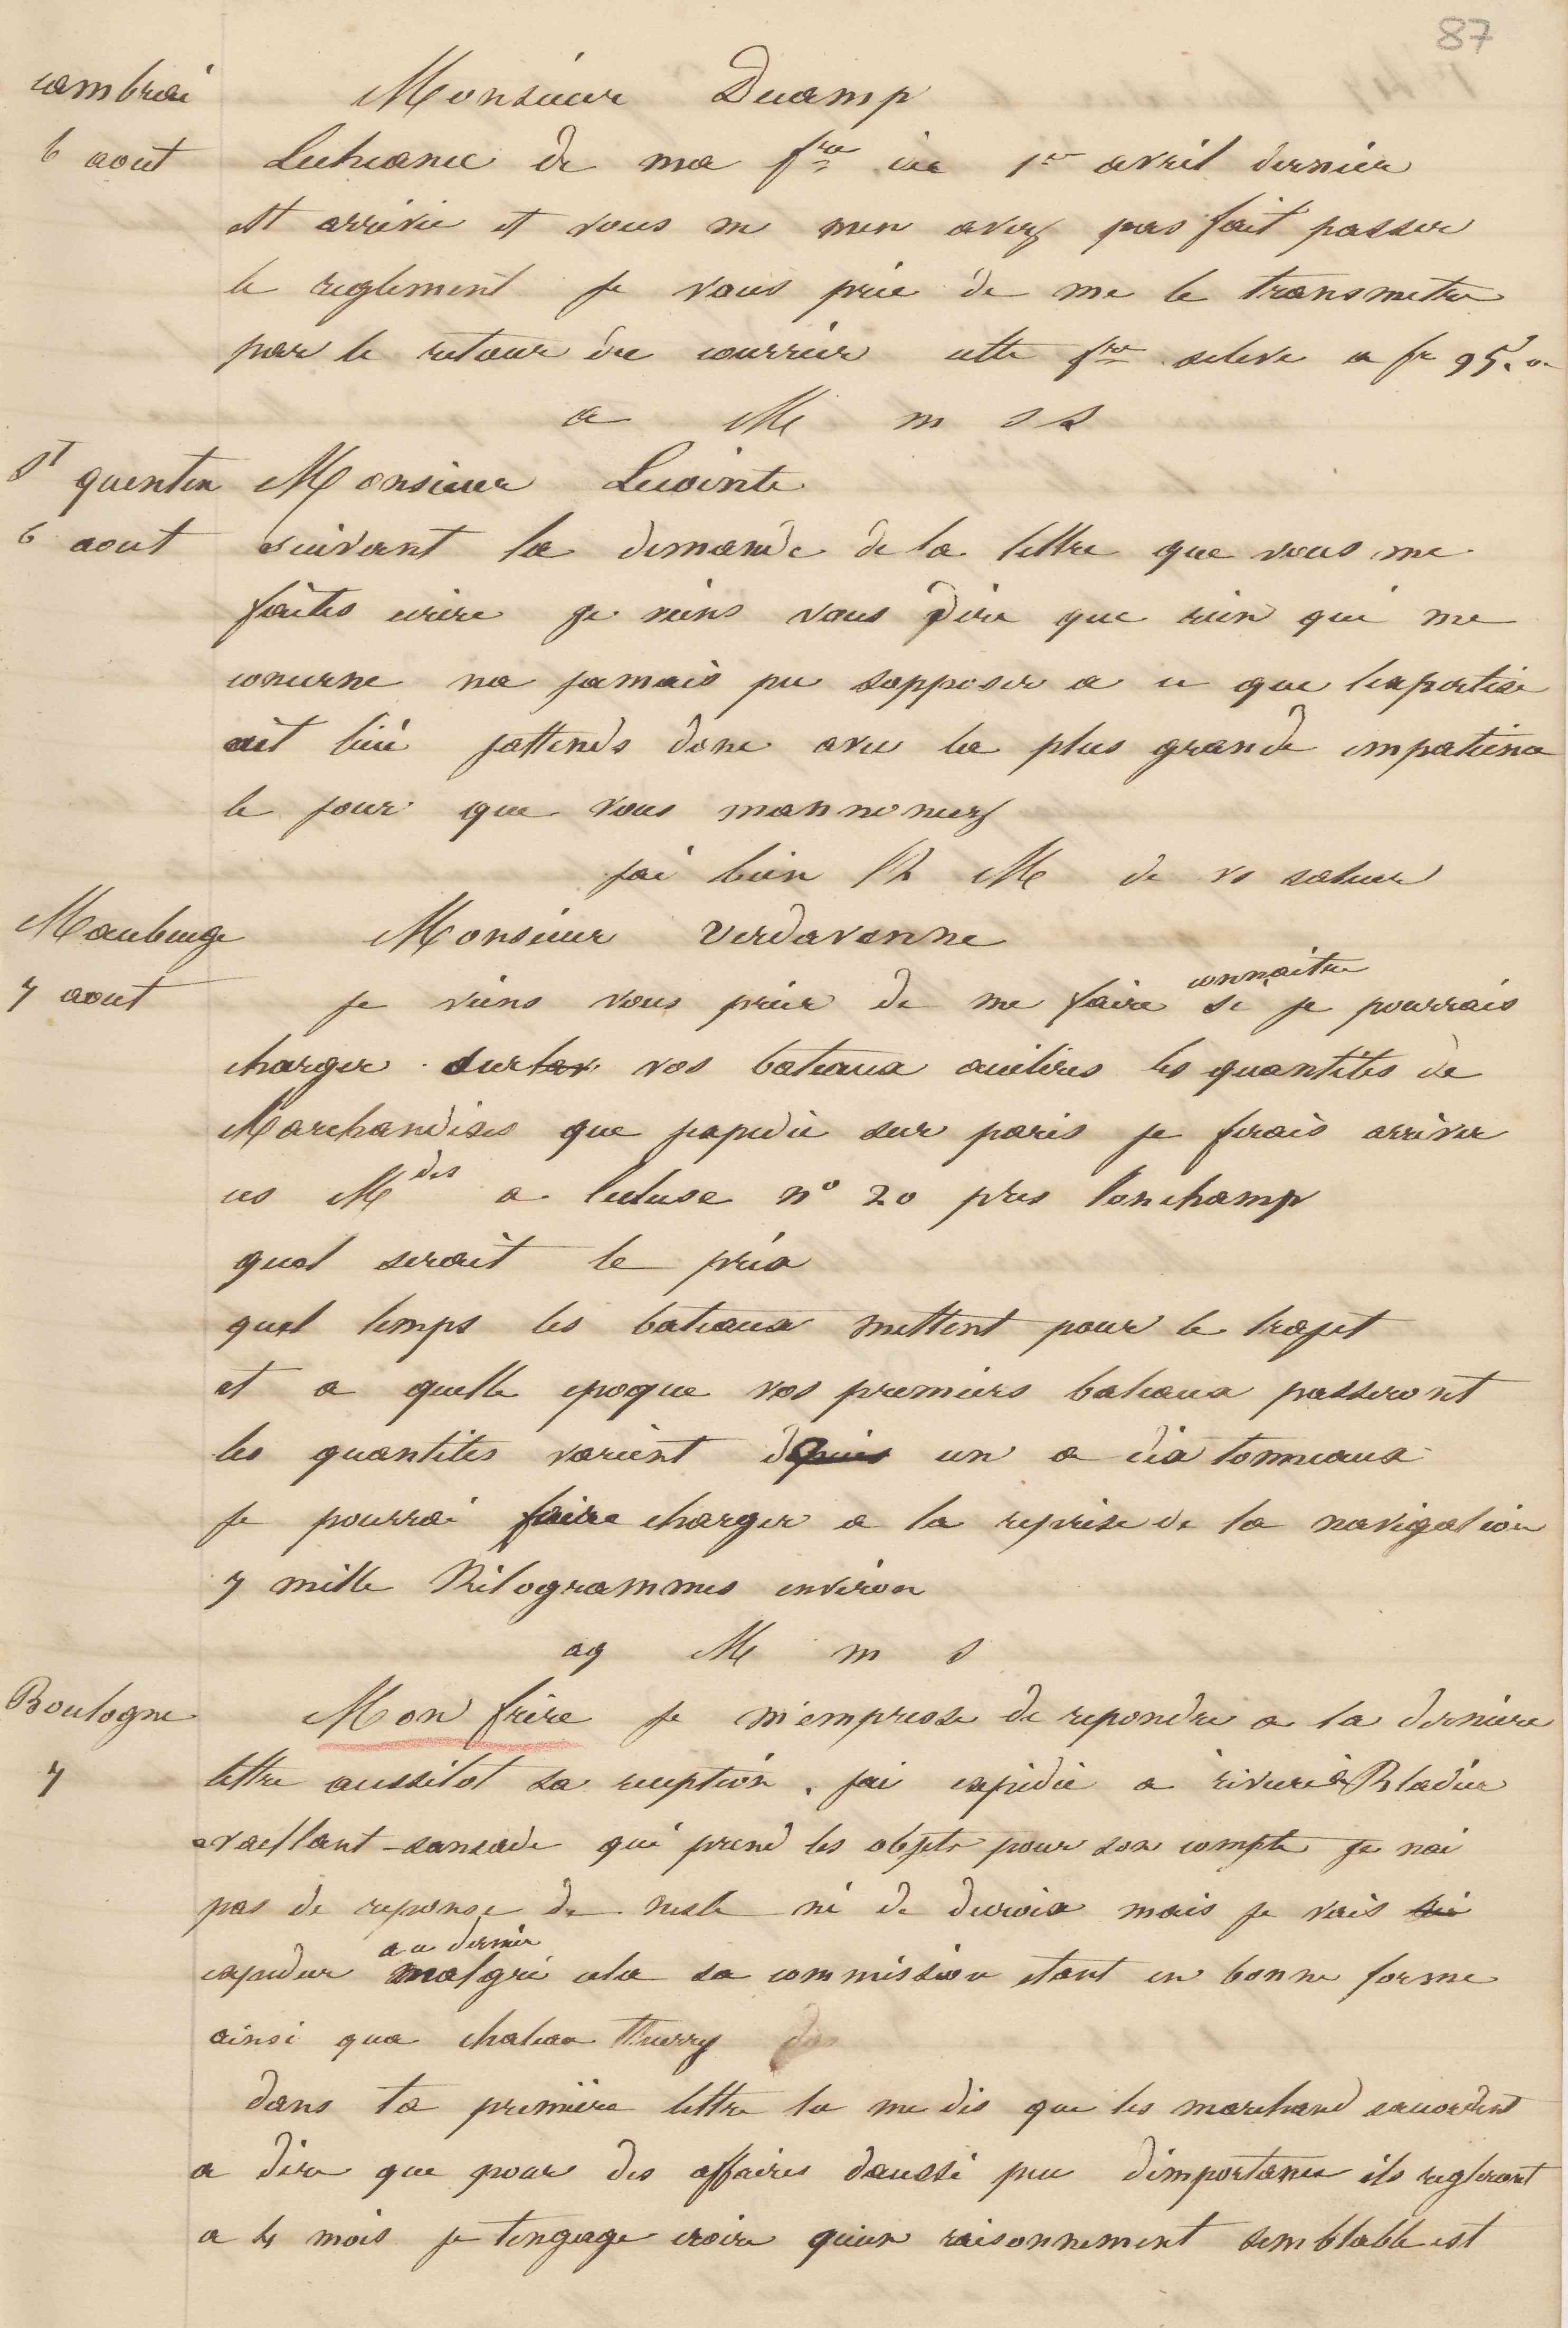 87
cambrai Monsieur Ducamp
6 aout Lecheance de ma fre du 1er avril dernier
est arrivée et vous ne men avez pas fait passer
le reglement je vous prie de me le transmettre
par le retour du courrier cette fre seleve a fr 95.
a M m s s
St quentin Monsieur Lecointe
6 aout suivant la demande de la lettre que vous me
faites ecrire je viens vous dire que rien qui me
concerne na jamais pu sopposer a ce que lexpertise
ait lieu jattends donc avec la plus grande impatience
le jour que vous mannoncez
jai bien lh M de vs saluer
Maubeuge Monsieur Verdavenne
7 aout je viens vous prier de me faire connaitre si je pourrais
charger sur vos bateaux accelires les quantites de
Marchandises que jexpedie sur paris je ferais arriver
ces Mdes a lecluse no 20 pres lonchamp
quel serait le prix
quel temps les bateaux mettent pour le trajet
et a quelle epoque vos premiers bateaux passeront
les quantites varient depuis un a dix tonneaux
je pourrai faire charger a la reprise de la navigation
7 mille Kilogrammes environ
ag M m s
Boulogne Mon frère je m'empresse de repondre a la derniere
7 lettre aussitot sa reception. jai expedié a
vaillant qui prend les objets pour son compte je nai
pas de reponse de nesle ni de mais je vais
expedier au dernier malgré cela sa commission etant en bonne forme
ainsi qua chateau Thierry
dans ta premiere lettre tu me dis que les marchand saccordent
a dire que pour des affaires daussi peu dimportance ils regleront
a 4 mois je tengage croire quun raisonnement semblable est